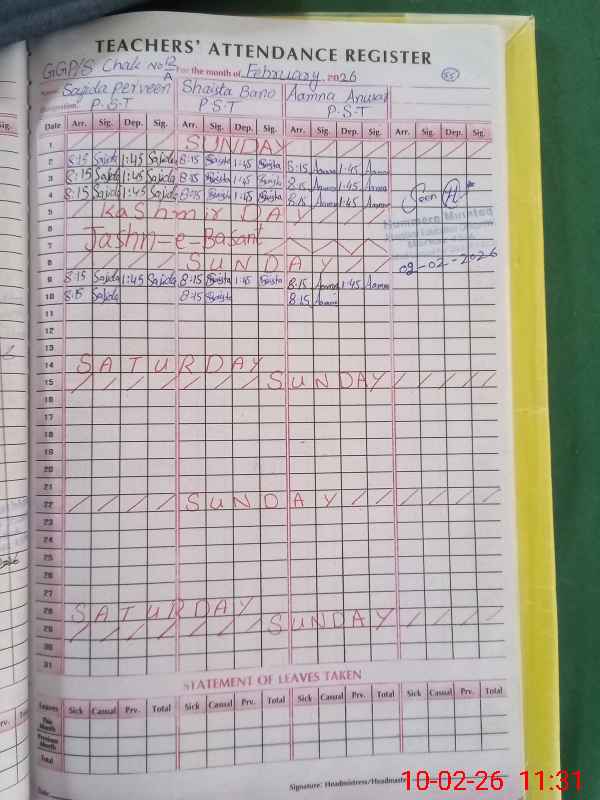 TEACHERS' ATTENDANCE REGISTER
GGP/S Chak No 12 A For the month of February 2026 55
Name Sajida Perveen Shaista Bano Aamna Anwar
Designation P.S.T P.S.T P.S.T
Date Arr. Sig. Dep. Sig. Arr. Sig. Dep. Sig. Arr. Sig. Dep. Sig. Arr. Sig. Dep. Sig.
1 SUNDAY
2 8:15 Sajida 1:45 Sajida 8:15 Shaista 1:45 Shaista 8:15 Aamna 1:45 Aamna
3 8:15 Sajida 1:45 Sajida 8:15 Shaista 1:45 Shaista 8:15 Aamna 1:45 Aamna
4 8:15 Sajida 1:45 Sajida 8:15 Shaista 1:45 Shaista 8:15 Aamna 1:45 Aamna Seen
5 Kashmir DAY
6
7 Jashn-e-Basant
8 SUNDAY 09-02-2026
9 8:15 Sajida 1:45 Sajida 8:15 Shaista 1:45 Shaista 8:15 Aamna 1:45 Aamna
10 8:15 Sajida 8:15 Shaista 8:15 Aamna
11
12
13
14 SATURDAY
15 SUNDAY
16
17
18
19
20
21
22 SUNDAY
23
24
25
26
27
28 SATURDAY
29 SUNDAY
30
31
STATEMENT OF LEAVES TAKEN
Leaves Sick Casual Prv. Total Sick Casual Prv. Total Sick Casual Prv. Total Sick Casual Prv. Total
This Month
Previous Month
Total
Date Signature: Headmistress/Headmaster
10-02-26 11:31